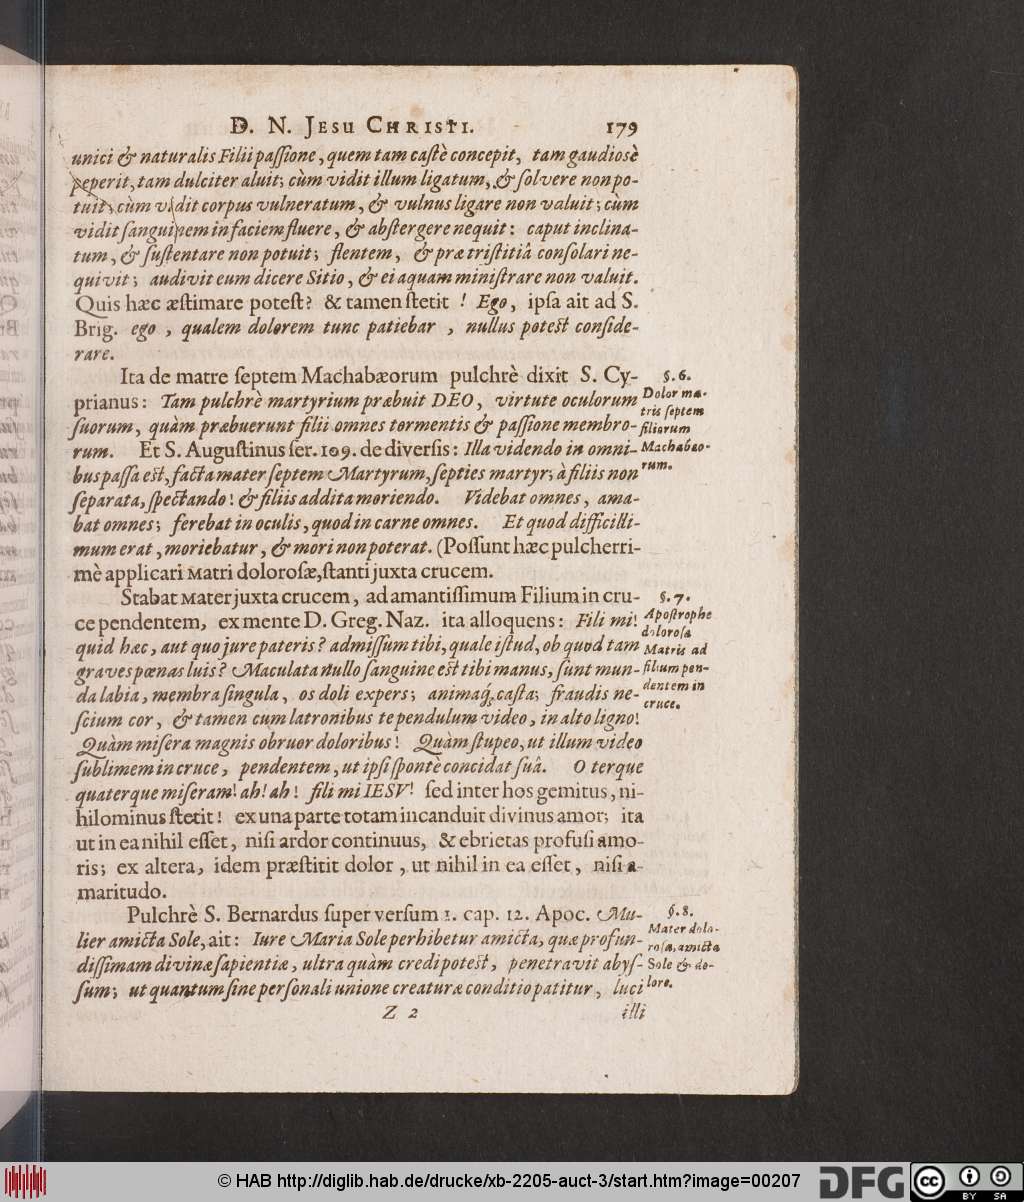 D. N. JESU CHRISTI. 179
unici & naturalis Filii paſſione, quem tam caſtè concepit, tam gaudiosè
peperit, tam dulciter aluit; cùm vidit illum ligatum, & ſolvere non po-
tuit; cùm vidit corpus vulneratum, & vulnus ligare non valuit; cùm
vidit ſanguinem in faciem fluere, & abſtergere nequit: caput inclina-
tum, & ſuſtentare non potuit; flentem, & præ triſtitiâ conſolari ne-
quivit; audivit eum dicere Sitio, & ei aquam miniſtrare non valuit.
Quis hæc æſtimare poteſt? & tamen ſtetit ! Ego, ipſa ait ad S.
Brig. ego , qualem dolorem tunc patiebar , nullus poteſt conſide-
rare.
Ita de matre ſeptem Machabæorum pulchrè dixit S. Cy-
prianus: Tam pulchrè martyrium præbuit DEO, virtute oculorum
ſuorum, quàm præbuerunt filii omnes tormentis & paſſione membro-
rum. Et S. Auguſtinus ſer. 109. de diverſis: Illa videndo in omni-
bus paſſa eſt, facta mater ſeptem Martyrum, ſepties martyr; à filiis non
ſeparata, ſpectando! & filiis addita moriendo. Videbat omnes, ama-
bat omnes; ferebat in oculis, quod in carne omnes. Et quod difficilli-
mum erat, moriebatur, & mori non poterat. (Poſſunt hæc pulcherri-
mè applicari Matri doloroſæ, ſtanti juxta crucem.
§. 6.
Dolor ma-
tris ſeptem
filiorum
Machabæo-
rum.
Stabat Mater juxta crucem, ad amantiſſimum Filium in cru-
ce pendentem, ex mente D. Greg. Naz. ita alloquens: Fili mi!
quid hæc, aut quo jure pateris? admiſſum tibi, quale iſtud, ob quod tam
graves pœnas luis? Maculata nullo ſanguine eſt tibi manus, ſunt mun-
da labia, membra ſingula, os doli expers; animaq́; caſta; fraudis ne-
ſcium cor, & tamen cum latronibus te pendulum video, in alto ligno!
Quàm miſera magnis obruor doloribus! Quàm ſtupeo, ut illum video
ſublimem in cruce, pendentem, ut ipſi ſpontè concidat ſuâ. O terque
quaterque miſeram! ah! ah! fili mi IESV! ſed inter hos gemitus, ni-
hilominus ſtetit! ex una parte totam incanduit divinus amor; ita
ut in ea nihil eſſet, niſi ardor continuus, & ebrietas profuſi amo-
ris; ex altera, idem præſtitit dolor , ut nihil in ea eſſet, niſi a-
maritudo.
§. 7.
Apoſtrophe
doloroſa
Matris ad
filium pen-
dentem in
cruce.
Pulchrè S. Bernardus ſuper verſum 1. cap. 12. Apoc. Mu-
lier amicta Sole, ait: Iure Maria Sole perhibetur amicta, quæ profun-
diſſimam divinæ ſapientiæ, ultra quàm credi poteſt, penetravit abyſ-
ſum; ut quantum ſine perſonali unione creaturæ conditio patitur, luci
§. 8.
Mater dolo-
roſa, amicta
Sole & do-
lore.
Z 2 illi
© HAB http://diglib.hab.de/drucke/xb-2205-auct-3/start.htm?image=00207
DFG cc BY SA